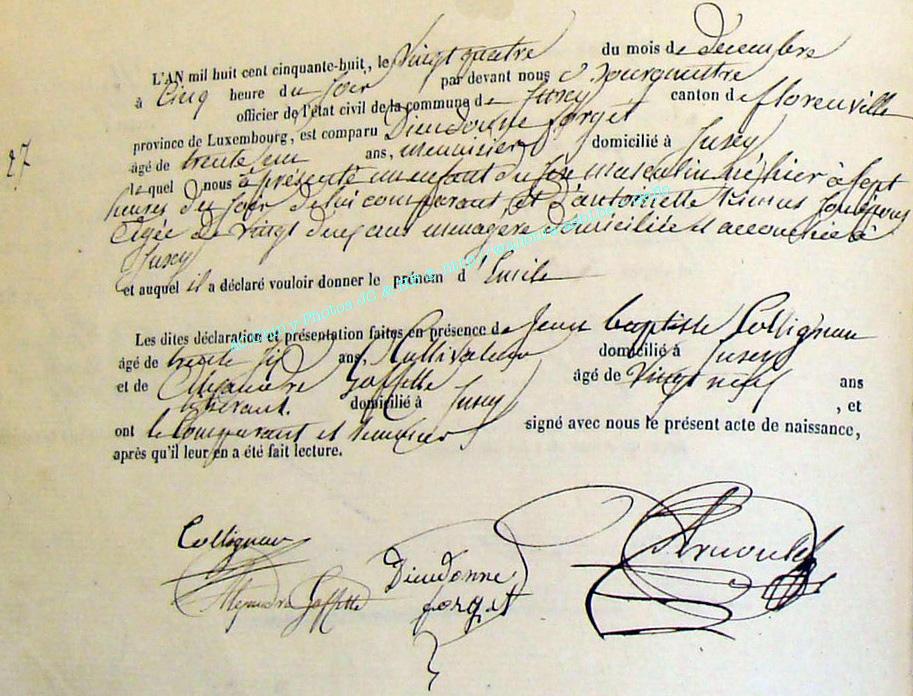 L'AN mil huit cent cinquante-huit, le Vingt quatre du mois de Décembre
à Cinq heure du Soir par devant nous
officier de l'état civil de la commune de Jusey canton de florenville
27
province de Luxembourg, est comparu Dieudonne forget
âgé de trente un ans, menuisier domicilié à Jusey
lequel nous a présenté un enfant du sexe masculin né hier à Sept
heures du Soir de lui comparant et d'antoinette Son épouse
Agée de Vingt deux ans menagère domiciliée et accouchée à
Jusey
et auquel il a déclaré vouloir donner le prénom d'Emile
Les dites déclaration et présentation faites en présence de Jean baptiste Collignon
âgé de trente Six ans, Cultivateur domicilié à Jusey
et de Alexandre Goffette âgé de Vingt neuf ans
domicilié à Jusey , et
ont le Comparant et temoins signé avec nous le présent acte de naissance,
après qu'il leur en a été fait lecture.
Collignon
Alexandre Goffette
Dieudonne
forget